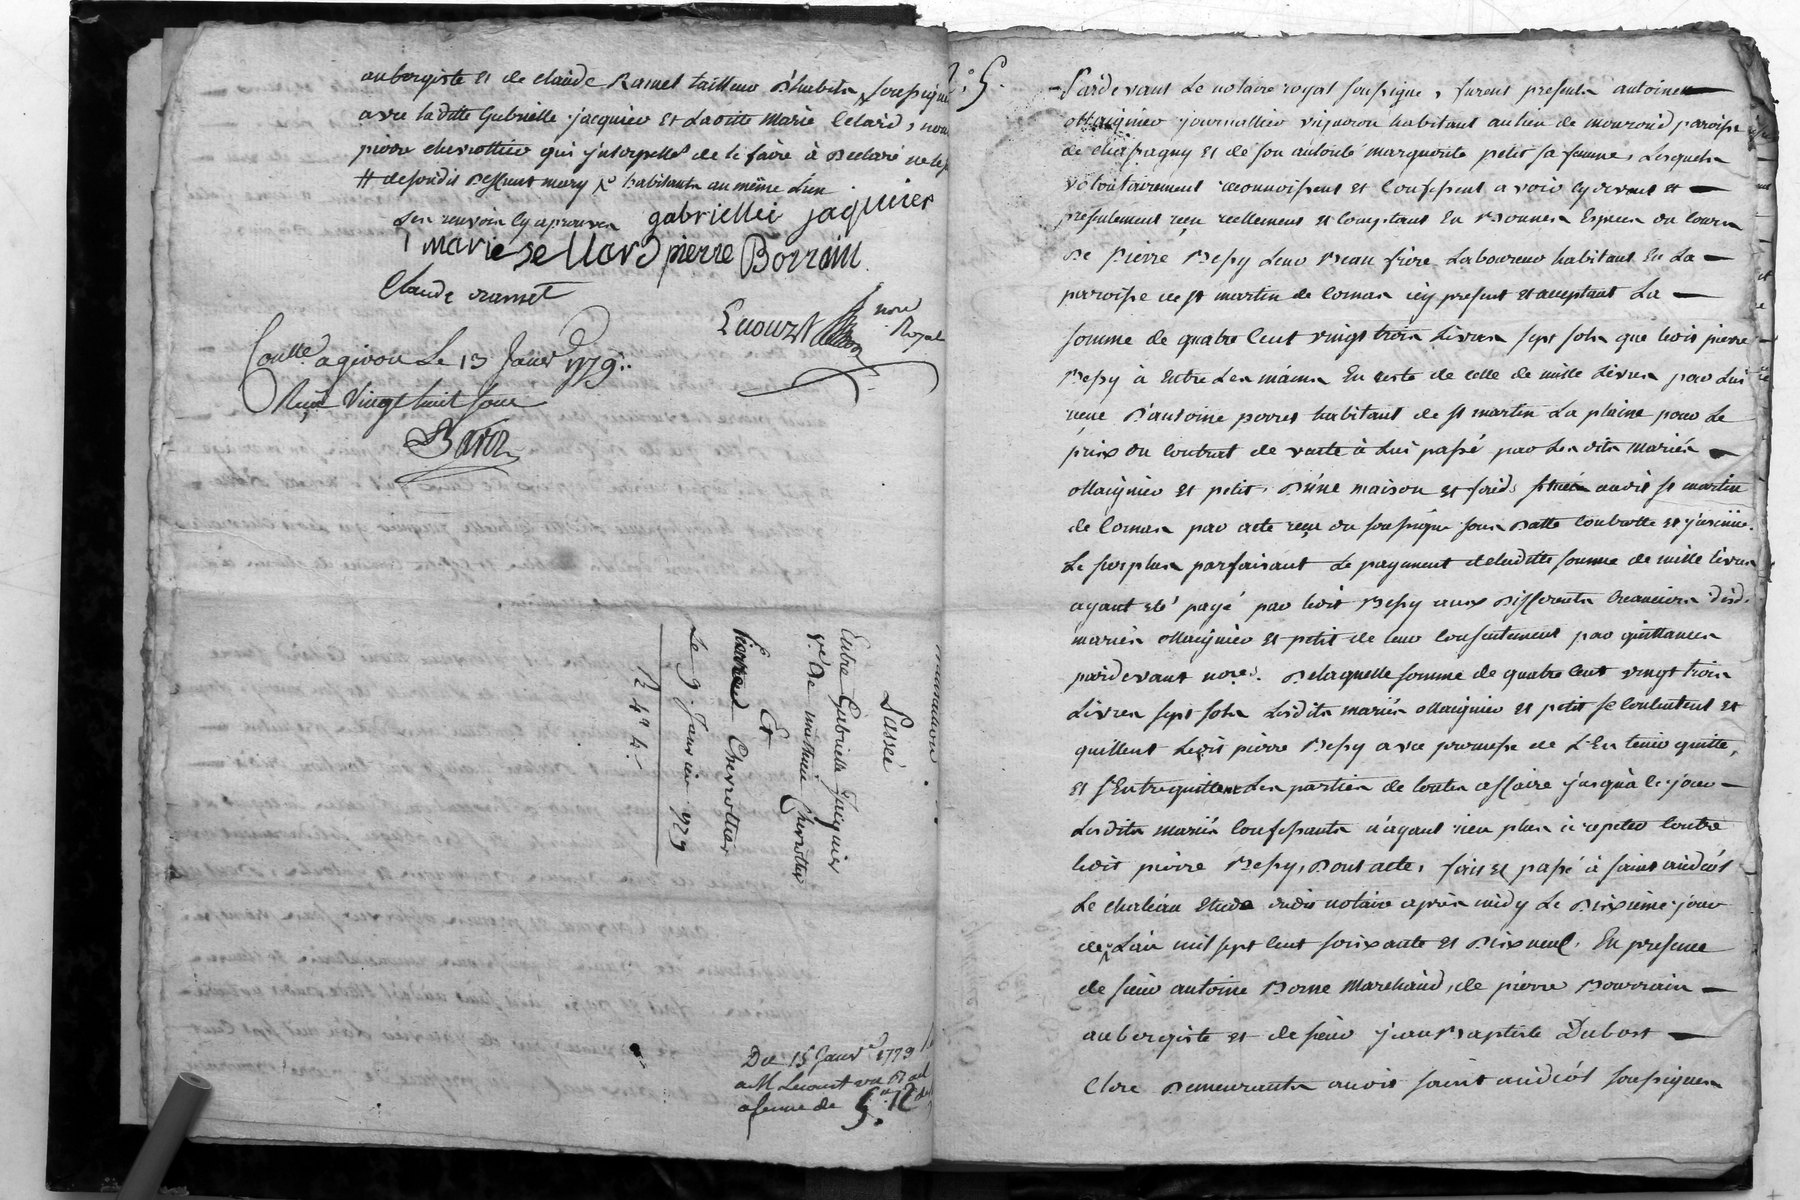 aubergiste et de claude Ramel tailleur d'habits, soussignés
avec laditte Gabrielle jacquier et laditte Marie Celard, non
pierre chevrottier qui j'nterpellé de le faire à declaré ne le
# desondit deffunt mary habitants au même lieu
Les renvois cy aprouvés
gabriellei jaquier
marie sellard pierre Borrain
Claude ramel
Lecourt nore Royal
Conllé a givors Le 13 Janvr 1779
Reçu Vingt huit sous
Baron
Cassée
Entre Gabrielle Jacquier
ve. de mathieu Chevrottier
Et
pierre Chevrottier
Le 9 Janvier 1779
Du 15 Janvr 1779
a M Lecourt un Bail
a ferme de
n°. 5.
Pardevant Le notaire royal soussigné, furent présents antoine
Magnier journallier vigneron habitant au lieu de mouroud paroisse
de chassagny et de son autorité marguerite petit sa femme, Lesquels
volontairement reconnoissent et Confessent avoir cy devant et
presentement reçu reellement et Comptant En Bonnes Especes du cours
de Pierre Bessy Leur Beau frère Laboureur habitant En La
paroisse de st martin de Cornas icy présent et acceptant La
somme de quatre Cent vingt trois Livres sept sols que ledit pierre
Bessy à Entre Les mains En reste de celle de mille Livres par Lui
reçue d'antoine perret habitant de st martin La plaine pour Le
prix du Contrat de vente à Lui passé par Lesdits mariés
Magnier et petit, d'une maison et fonds audit st martin
de Cornas par acte reçu du soussigné sous Datte Controllé et j'nsinué.
Le surplus parfaisant Le payement de laditte somme de mille livres
ayant été payé par ledit Bessy aux differents Creanciers desd.
mariés Magnier et petit de leur Consentement par quittances
pardevant nore. De laquelle somme de quatre Cent vingt trois
Livres sept sols Lesdits mariés Magnier et petit se Contentent et
quittent Ledit pierre Bessy avec promesse de L'En tenir quitte,
et s'Entrequittent Les parties de toutes affaire jusqu'à ce jour
Lesdits mariés Confessants n'ayant rien plus à repeter Contre
ledit pierre Bessy, Dont acte, fait et passé à saint andéol
Le chateau Etude dudit notaire après midy Le Dixieme jour
de L'an mil sept Cent soixante et Dix neuf. En presence
de sieur antoine Borne Marchand, de pierre Bourrain
aubergiste et de sieur jean Baptiste Dubost
Clerc Demeurants audit saint andéol soussignés